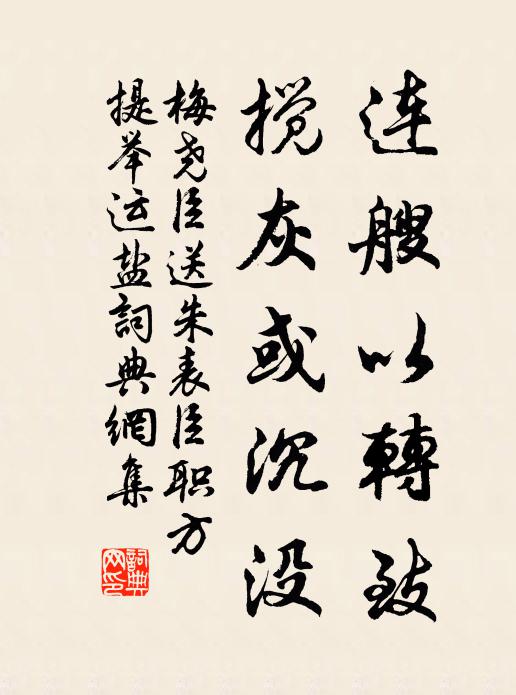 连艘以轉致
搅灰或沉没
梅尧臣送朱表臣职方
提举运盐詞典網集
詞典网印